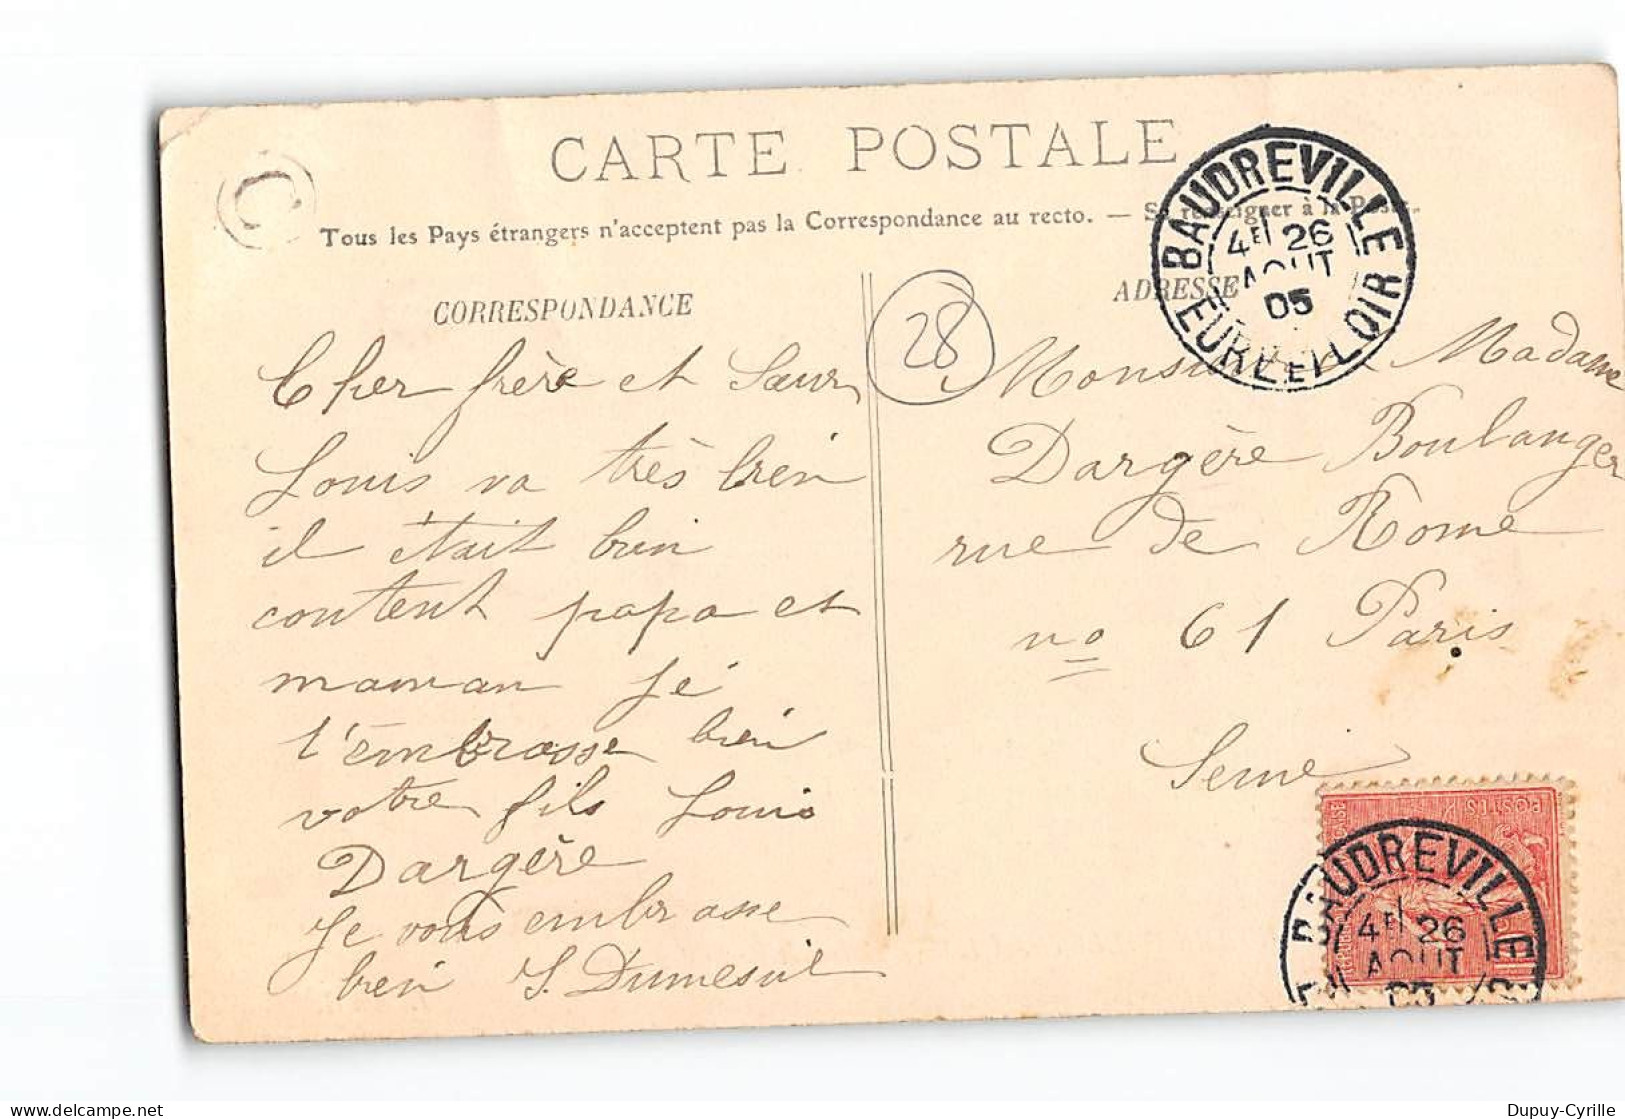 CARTE POSTALE
Tous les Pays étrangers n'acceptent pas la Correspondance au recto. — Se renseigner à la Poste.
C
CORRESPONDANCE
28
Cher frère et Sœur
Louis va très bien
il était bien
content papa et
maman je
t'embrasse bien
votre fils Louis
Dargère
Je vous embrasse
bien S. Dumesnil
ADRESSE
BAUDREVILLE
4E 26
AOUT
05
EURE ET LOIR
Monsieur Madame
Dargère Boulanger
rue de Rome
no 61 Paris
Seine
POSTES
BAUDREVILLE
4E 26
AOUT
05
Dupuy-Cyrille